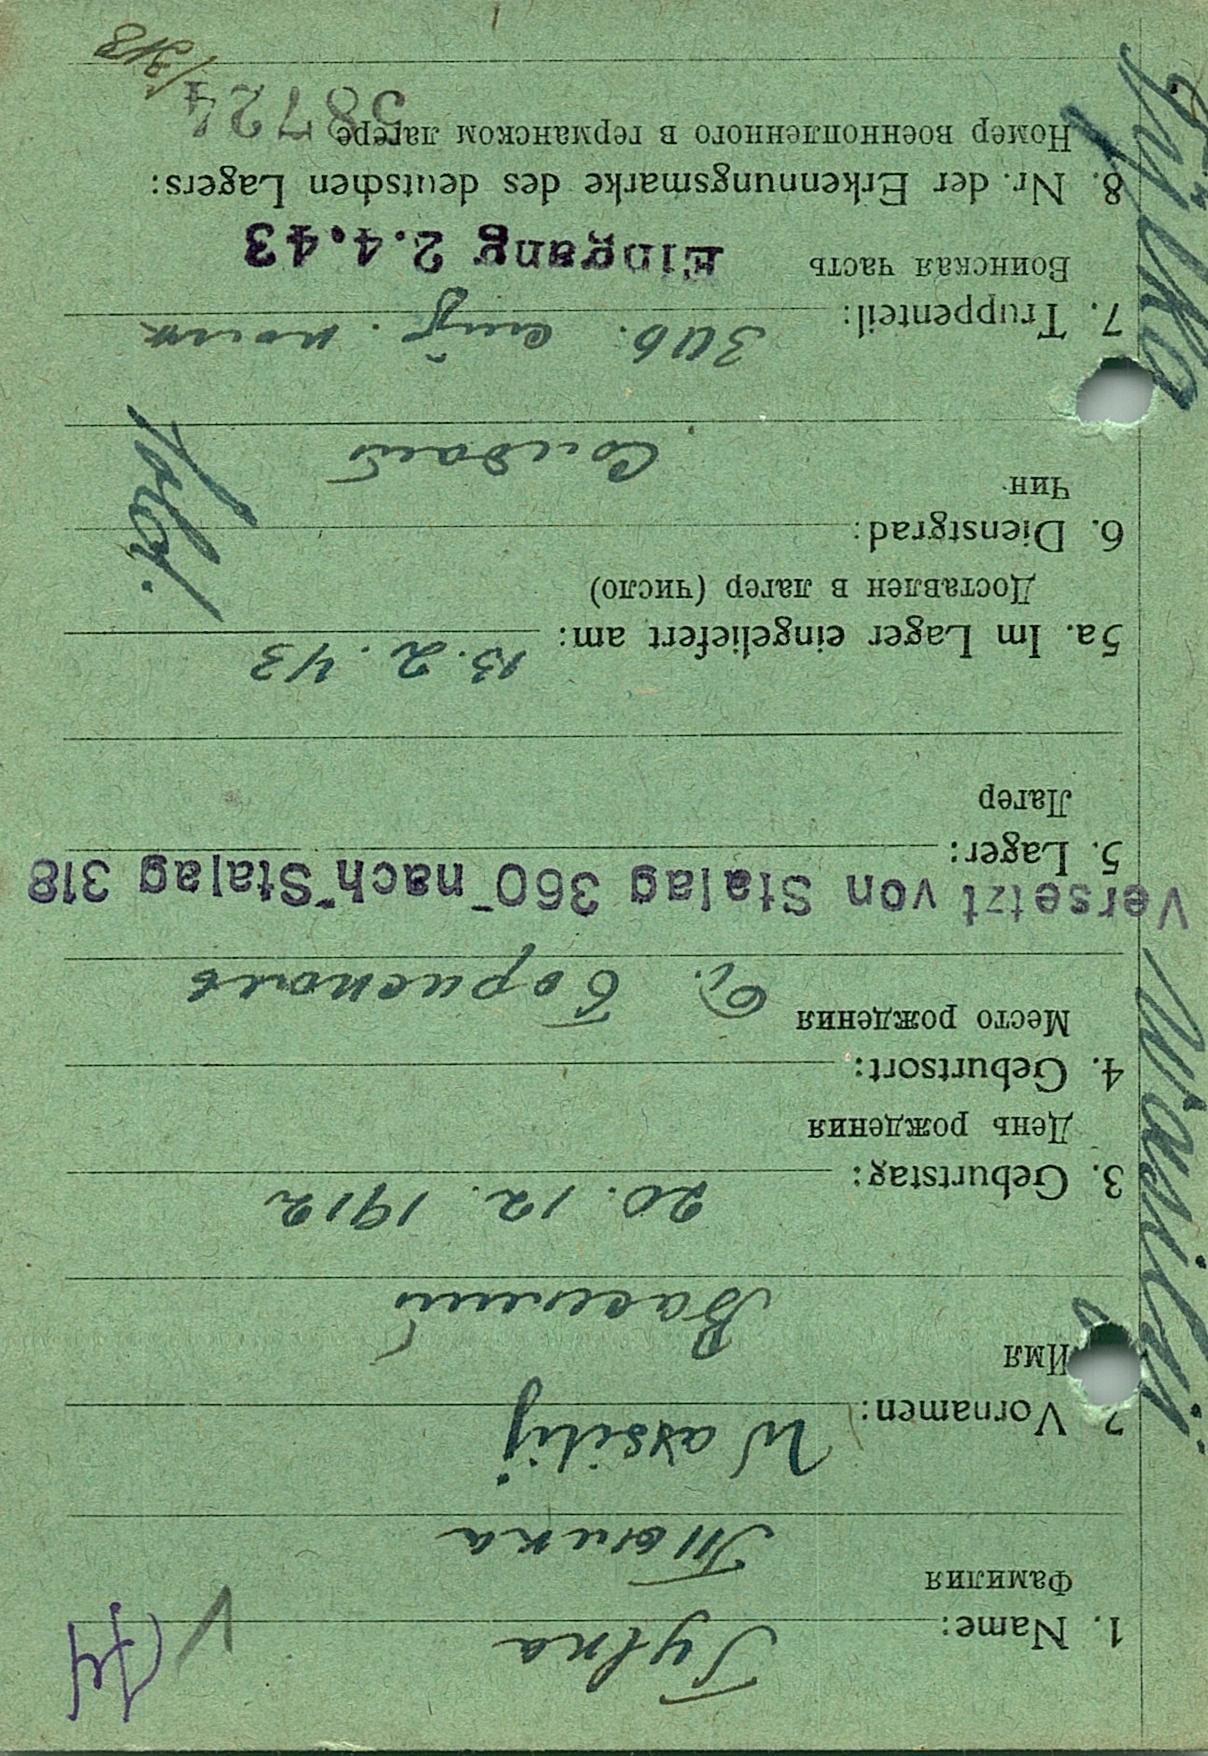 74
1. Name: Tylka
Фамилия
Тылка
2. Vornamen: Wassilij
Имя
Василий
3. Geburtstag: 20. 12. 1912
День рождения
4. Geburtsort:
Место рождения
Борисполь
Versetzt von Stalag 360 nach Stalag 318
5. Lager:
Лагер
5a. Im Lager eingeliefert am: 13. 2. 43
Доставлен в лагер (число)
6. Dienstgrad:
Чин
Солдат
Sold.
7. Truppenteil: 316.
Воинская часть
Eingang 2.4.43
8. Nr. der Erkennungsmarke des deutschen Lagers:
Номер военнопленного в германском лагере
58724
/318
Wasilij
Tylka